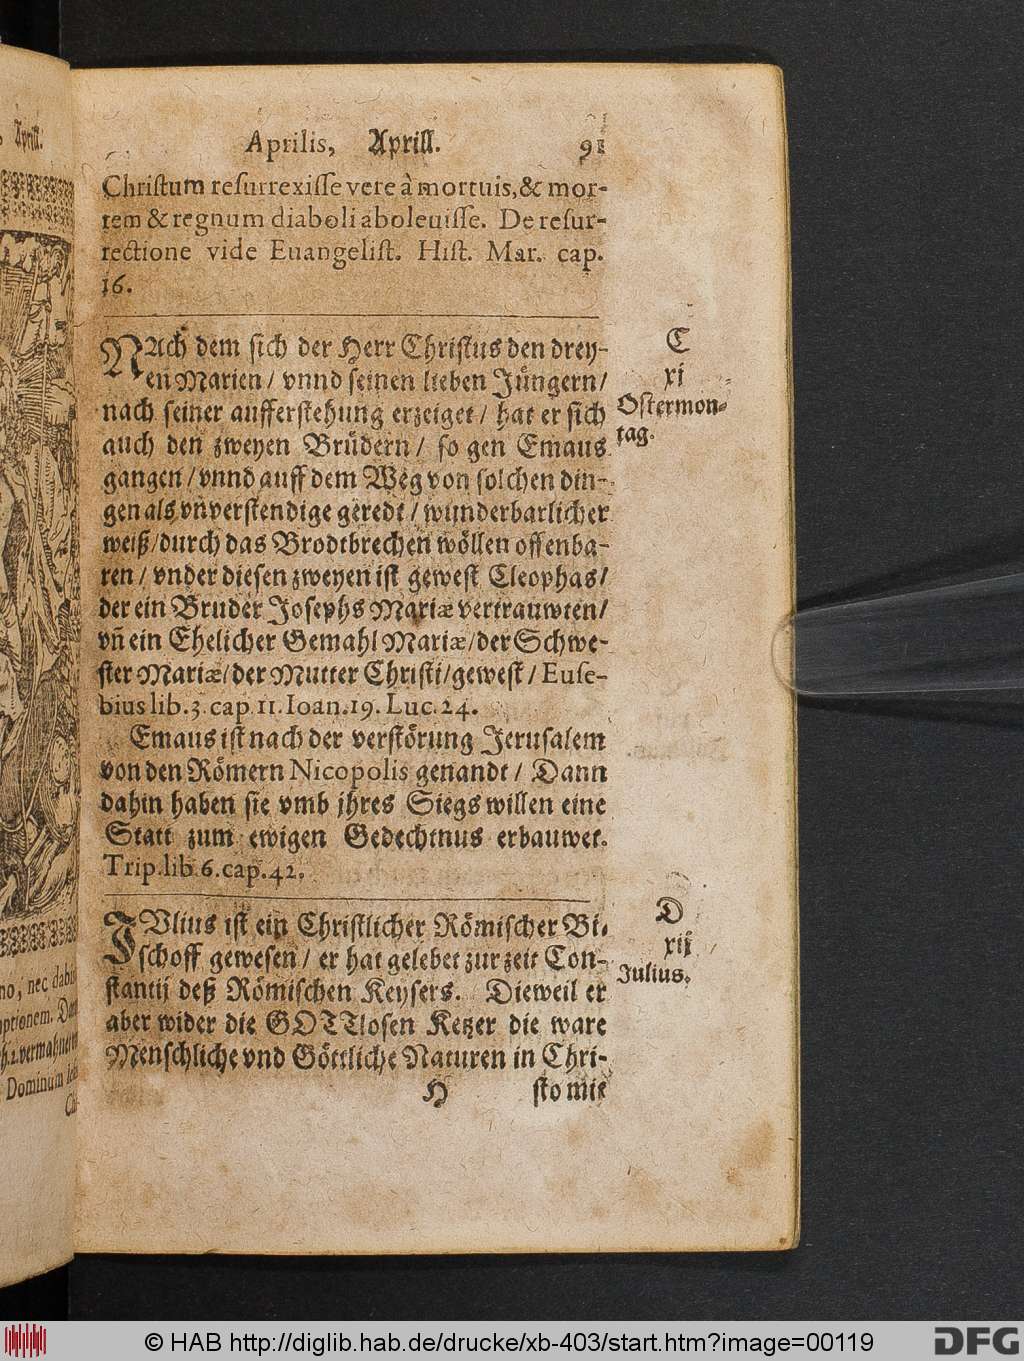 Aprilis, Aprill. 91
Christum resurrexisse vere à mortuis, & mor-
tem & regnum diaboli aboleuisse. De resur-
rectione vide Euangelist. Hist. Mar. cap.
16.
NAch dem sich der Herr Christus den drey-
en Marien / vnnd seinen lieben Jüngern /
nach seiner aufferstehung erzeiget / hat er sich
auch den zweyen Brüdern / so gen Emaus
gangen / vnnd auff dem Weg von solchen din-
gen als vnverstendige geredt / wunderbarlicher
weiß / durch das Brodtbrechen wöllen offenba-
ren / vnder diesen zweyen ist gewest Cleophas /
der ein Bruder Josephs Mariæ vertrauwten /
vn̄ ein Ehelicher Gemahl Mariæ / der Schwe-
ster Mariæ / der Mutter Christi / gewest / Euse-
bius lib. 3. cap 11. Ioan. 19. Luc. 24.
Emaus ist nach der verstörung Jerusalem
von den Römern Nicopolis genandt / Dann
dahin haben sie vmb jhres Siegs willen eine
Statt zum ewigen Gedechtnus erbauwet.
Trip. lib. 6. cap. 42.
C
xi
Ostermon-
tag.
JVlius ist ein Christlicher Römischer Bi-
schoff gewesen / er hat gelebet zur zeit Con-
stantij deß Römischen Keysers. Dieweil er
aber wider die GOTTlosen Ketzer die ware
Menschliche vnd Göttliche Naturen in Chri-
H sto mit
D
xij
Julius.
Aprill.
no, nec dabi
Dominum
© HAB http://diglib.hab.de/drucke/xb-403/start.htm?image=00119
DFG